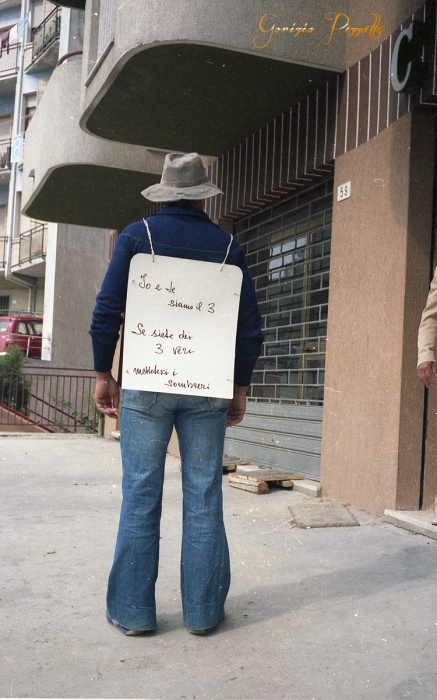 C
59
Io e te
siamo il 3
Se siete dei
3 veri
mettetevi i
sombreri